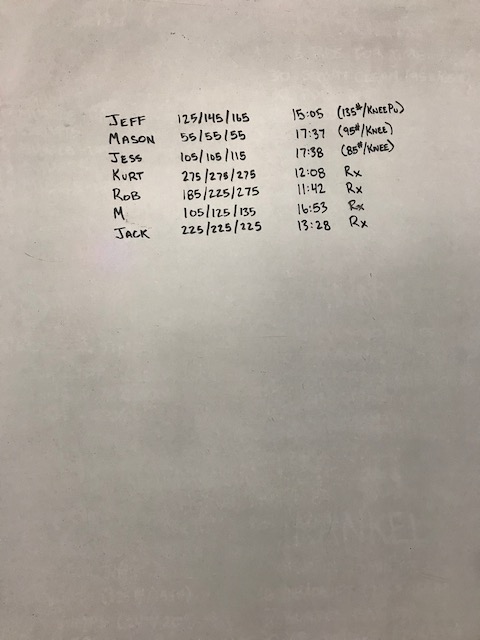 JEFF 125/145/165 15:05 (135#/KNEE PU)
MASON 55/55/55 17:37 (95#/KNEE)
JESS 105/105/115 17:38 (85#/KNEE)
KURT 275/275/275 12:08 Rx
ROB 185/225/275 11:42 Rx
M 105/125/135 16:53 Rx
JACK 225/225/225 13:28 Rx